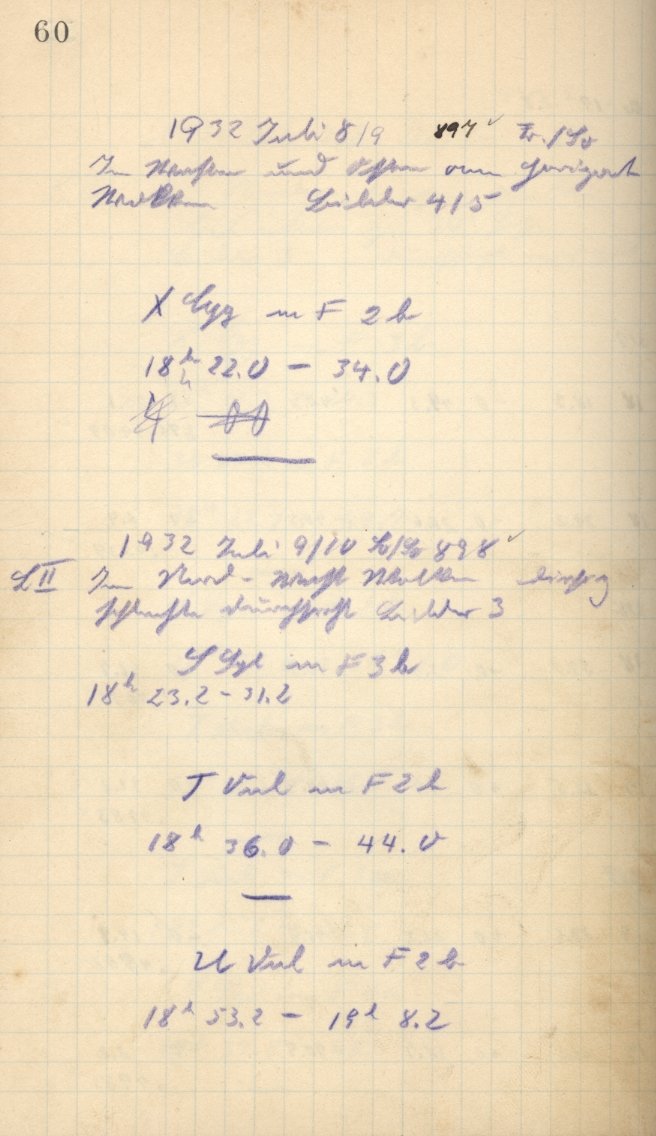 60
1932 Juli 8/9 897 Fr./Sa
Im Westen und Osten am Horizont
Wolken Bilder 4/5
X Cyg in F 2 b
18h 22.0 – 34.0
1932 Juli 9/10 Sa/So 898
L II Im Nord-West Wolken
schlechte Durchsicht Bilder 3
S Sge in F 3 b
18h 23.2 – 31.2
T Vul in F 2 b
18h 36.0 – 44.0
U Vul in F 2 b
18h 53.2 – 19h 8.2